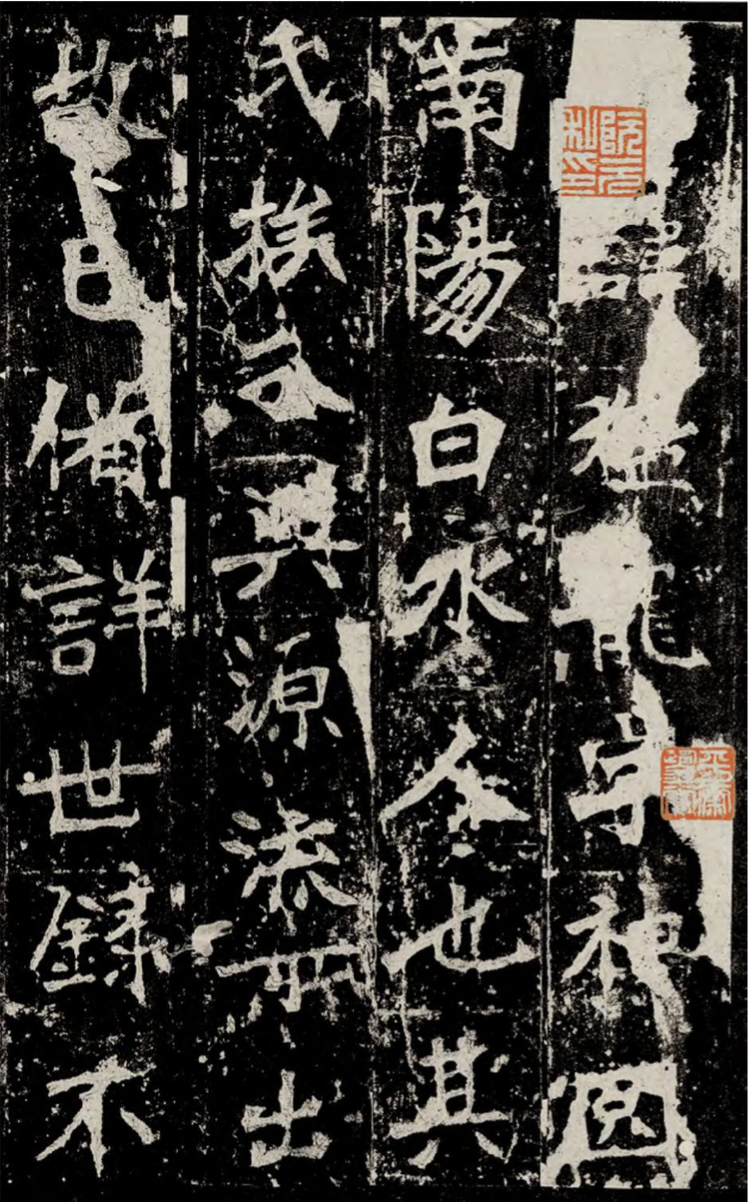 諱猛龍字神囧
南陽白水人也其
氏族分興源流所出
故已備詳世錄不